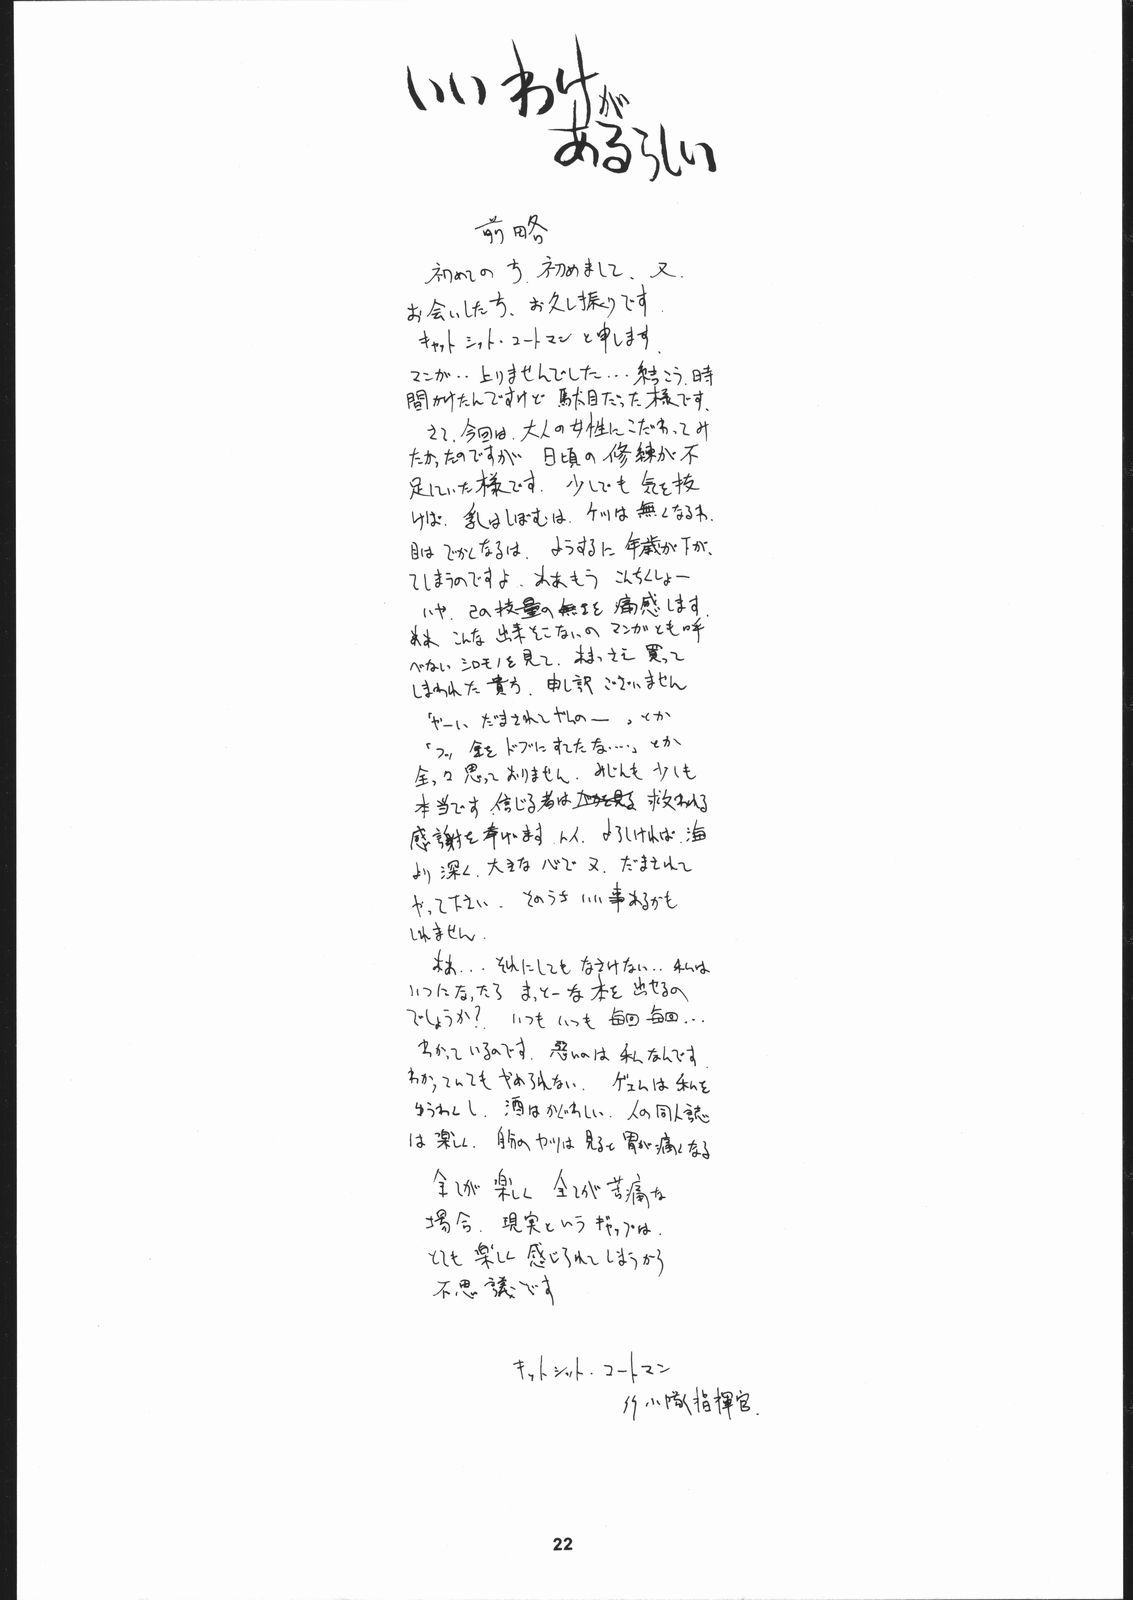 いいわけが
あるらしい
前略
初めての方、初めまして、又、
お会いした方、お久し振りです。
キャットシット・コートマンと申します。
マンガ‥上りませんでした…結こう、時
間かけたんですけど駄目だった様です。
さて、今回は、大人の女性にこだわってみ
たかったのですが 日頃の修練が不
足していた様です。少しでも気を抜
けば、乳はしぼむは、ケツは無くなるわ、
目はでかくなるは、ようするに年歳が下が、
てしまうのですよ、わあもうこんちくしょー
いや、己の技量の無さを痛感します。
ああ、こんな出来そこないのマンガとも呼
べないシロモノを見て、あまっさえ買って
しまわれた貴方、申し訳ございません
「やーい だまされてやんのー」とか
「フッ 金をドブにすてたな‥‥」とか
全っ々思っておりません。みじんも少しも
本当です 信じる者は 救われる
感謝を捧げます よろしければ、海
より深く、大きな心で又、だまされて
やって下さい。そのうちいい事あるかも
しれません。
ああ…それにしてもなさけない‥私は
いつになったらまっとーな本を出せるの
でしょうか? いつもいつも毎回毎回…
わかっているのです。悪いのは私なんです。
わかっていてもやめられない。ゲェムは私を
ゆうわくし、酒はかぐわしい、人の同人誌
は楽しく、自分のヤツは見ると胃が痛くなる
全てが楽しく 全てが苦痛な
場合、現実というギャップは、
とても楽しく感じられてしまうから
不思議です
キャットシット・コートマン
小隊指揮官.
22